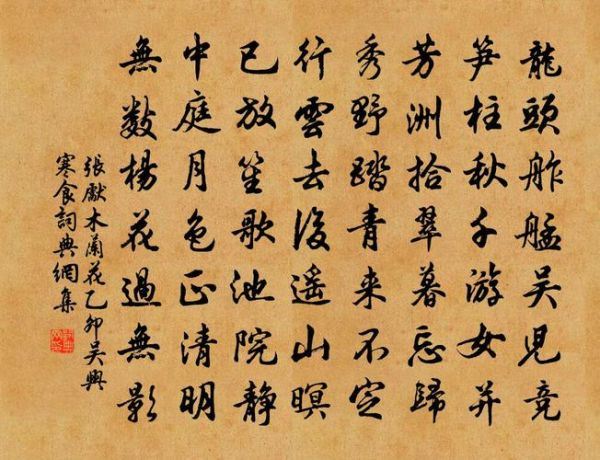 龍頭舴艋吳兒競
笋柱秋千游女并
芳洲拾翠暮忘歸
秀野踏青來不定
行雲去後遙山暝
已放笙歌池院靜
中庭月色正清明
無數楊花過無影
張獻木蘭花乙卯吳興
寒食詞典網集